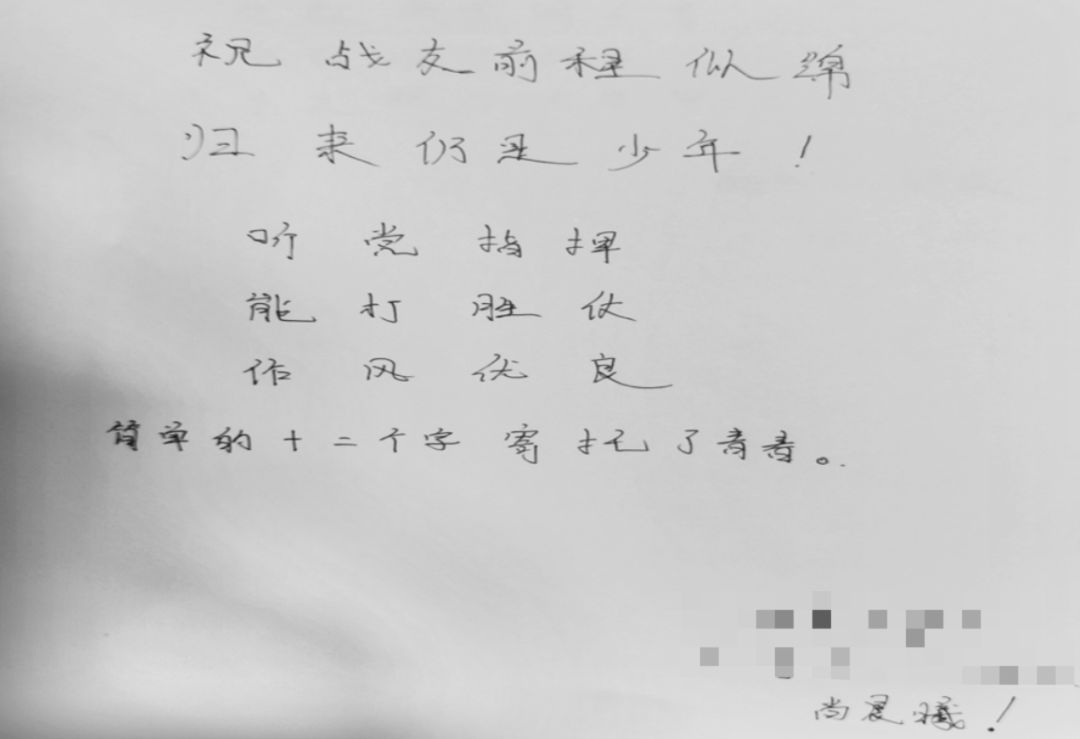 祝战友前程似锦
归来仍是少年！
听党指挥
能打胜仗
作风优良
简单的十二个字寄托了青春。
尚晨曦！